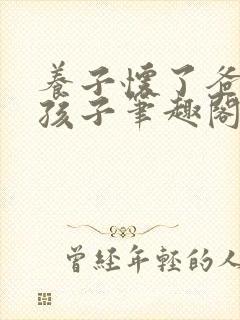 養子懷了爸
孩子筆趣閣
曾經年輕的人